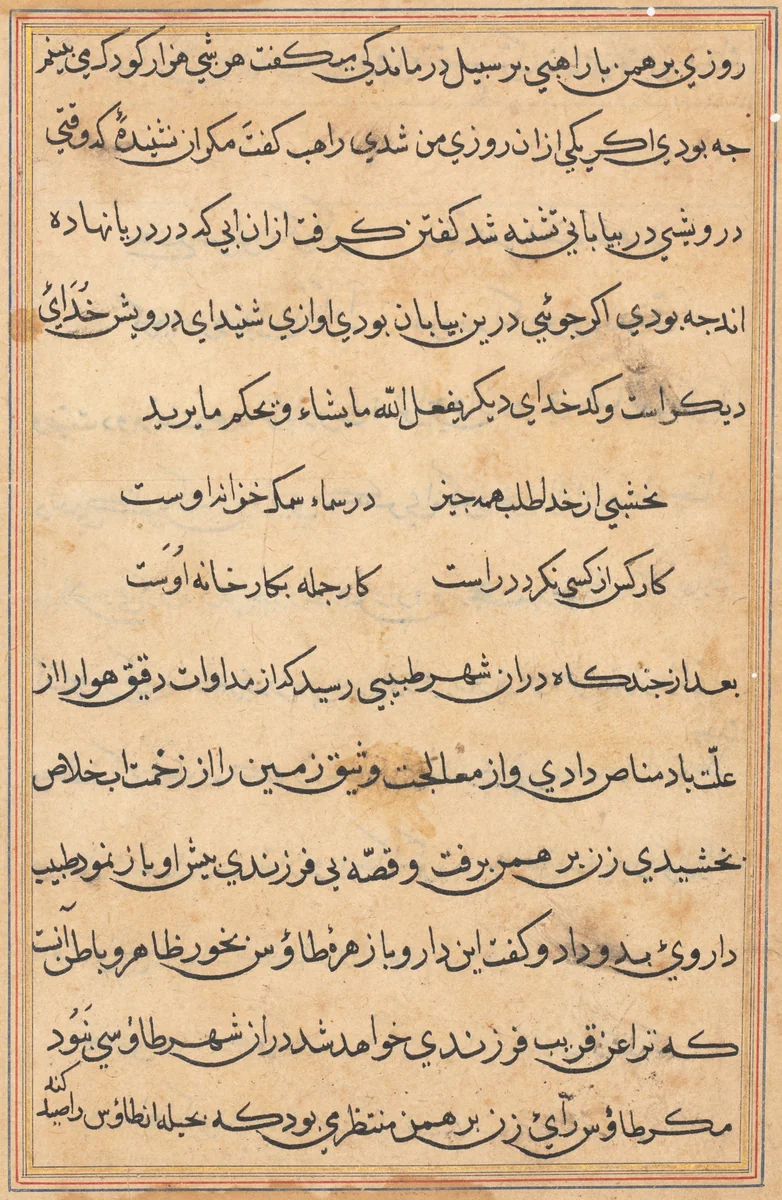 روزي برهمن باراهبي بر سبيل درماندكي ميكفت هر شبي هزار كودك مي بينم
جه بودي اكر يكي ازان روزي من شدي راهب كفت مكر ان نشنيدۀ كه وقتي
درويشي در بياباني تشنه شد كفتن كرفت ازان ابي كه در دريا نهاده
اند جه بودي اكر جوئي درين بيابان بودي اوازي شنيد اي درويش خُدَائ
ديكر است و كدخداي ديكر يفعل الله ما يشاء و يحكم ما يريد
نخشبي از خدا طلب همه جيز در سماء سمك خواند اوست
كار كس از كسي نكردد راست كار جمله بكارخانه اوُست
بعد از جند كاه دران شهر طبيبي رسيد كه از مداوات دقيق هوا را از
علّت باد مناص دادي و از معالجت وثيق زمين را از زحْمت اب خلاص
بخشيدي زن برهمن برفت و قصّه بي فرزندي بيش او باز نمود طبيب
داروئ بدو داد و كفت اين دارو با زهرۀ طاؤس بخور ظاهر و باطن آنست
كه ترا عن قريب فرزندي خواهد شد در ان شهر طاؤسي نَبُود
مكر طاؤس رآئ زن برهمن منتظر مي بود كه بحيله ان طاؤس را صيد كند